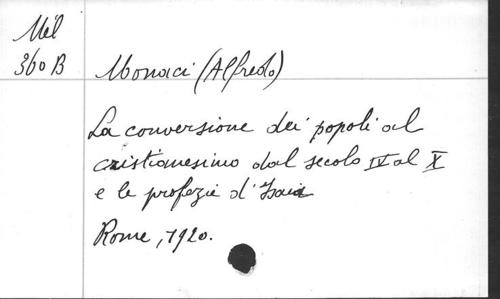 Mél
360 B
Monaci (Alfredo)
La conversione dei popoli al
cristianesimo dal secolo IV al X
e le profezie d'Isaia
Rome, 1920.